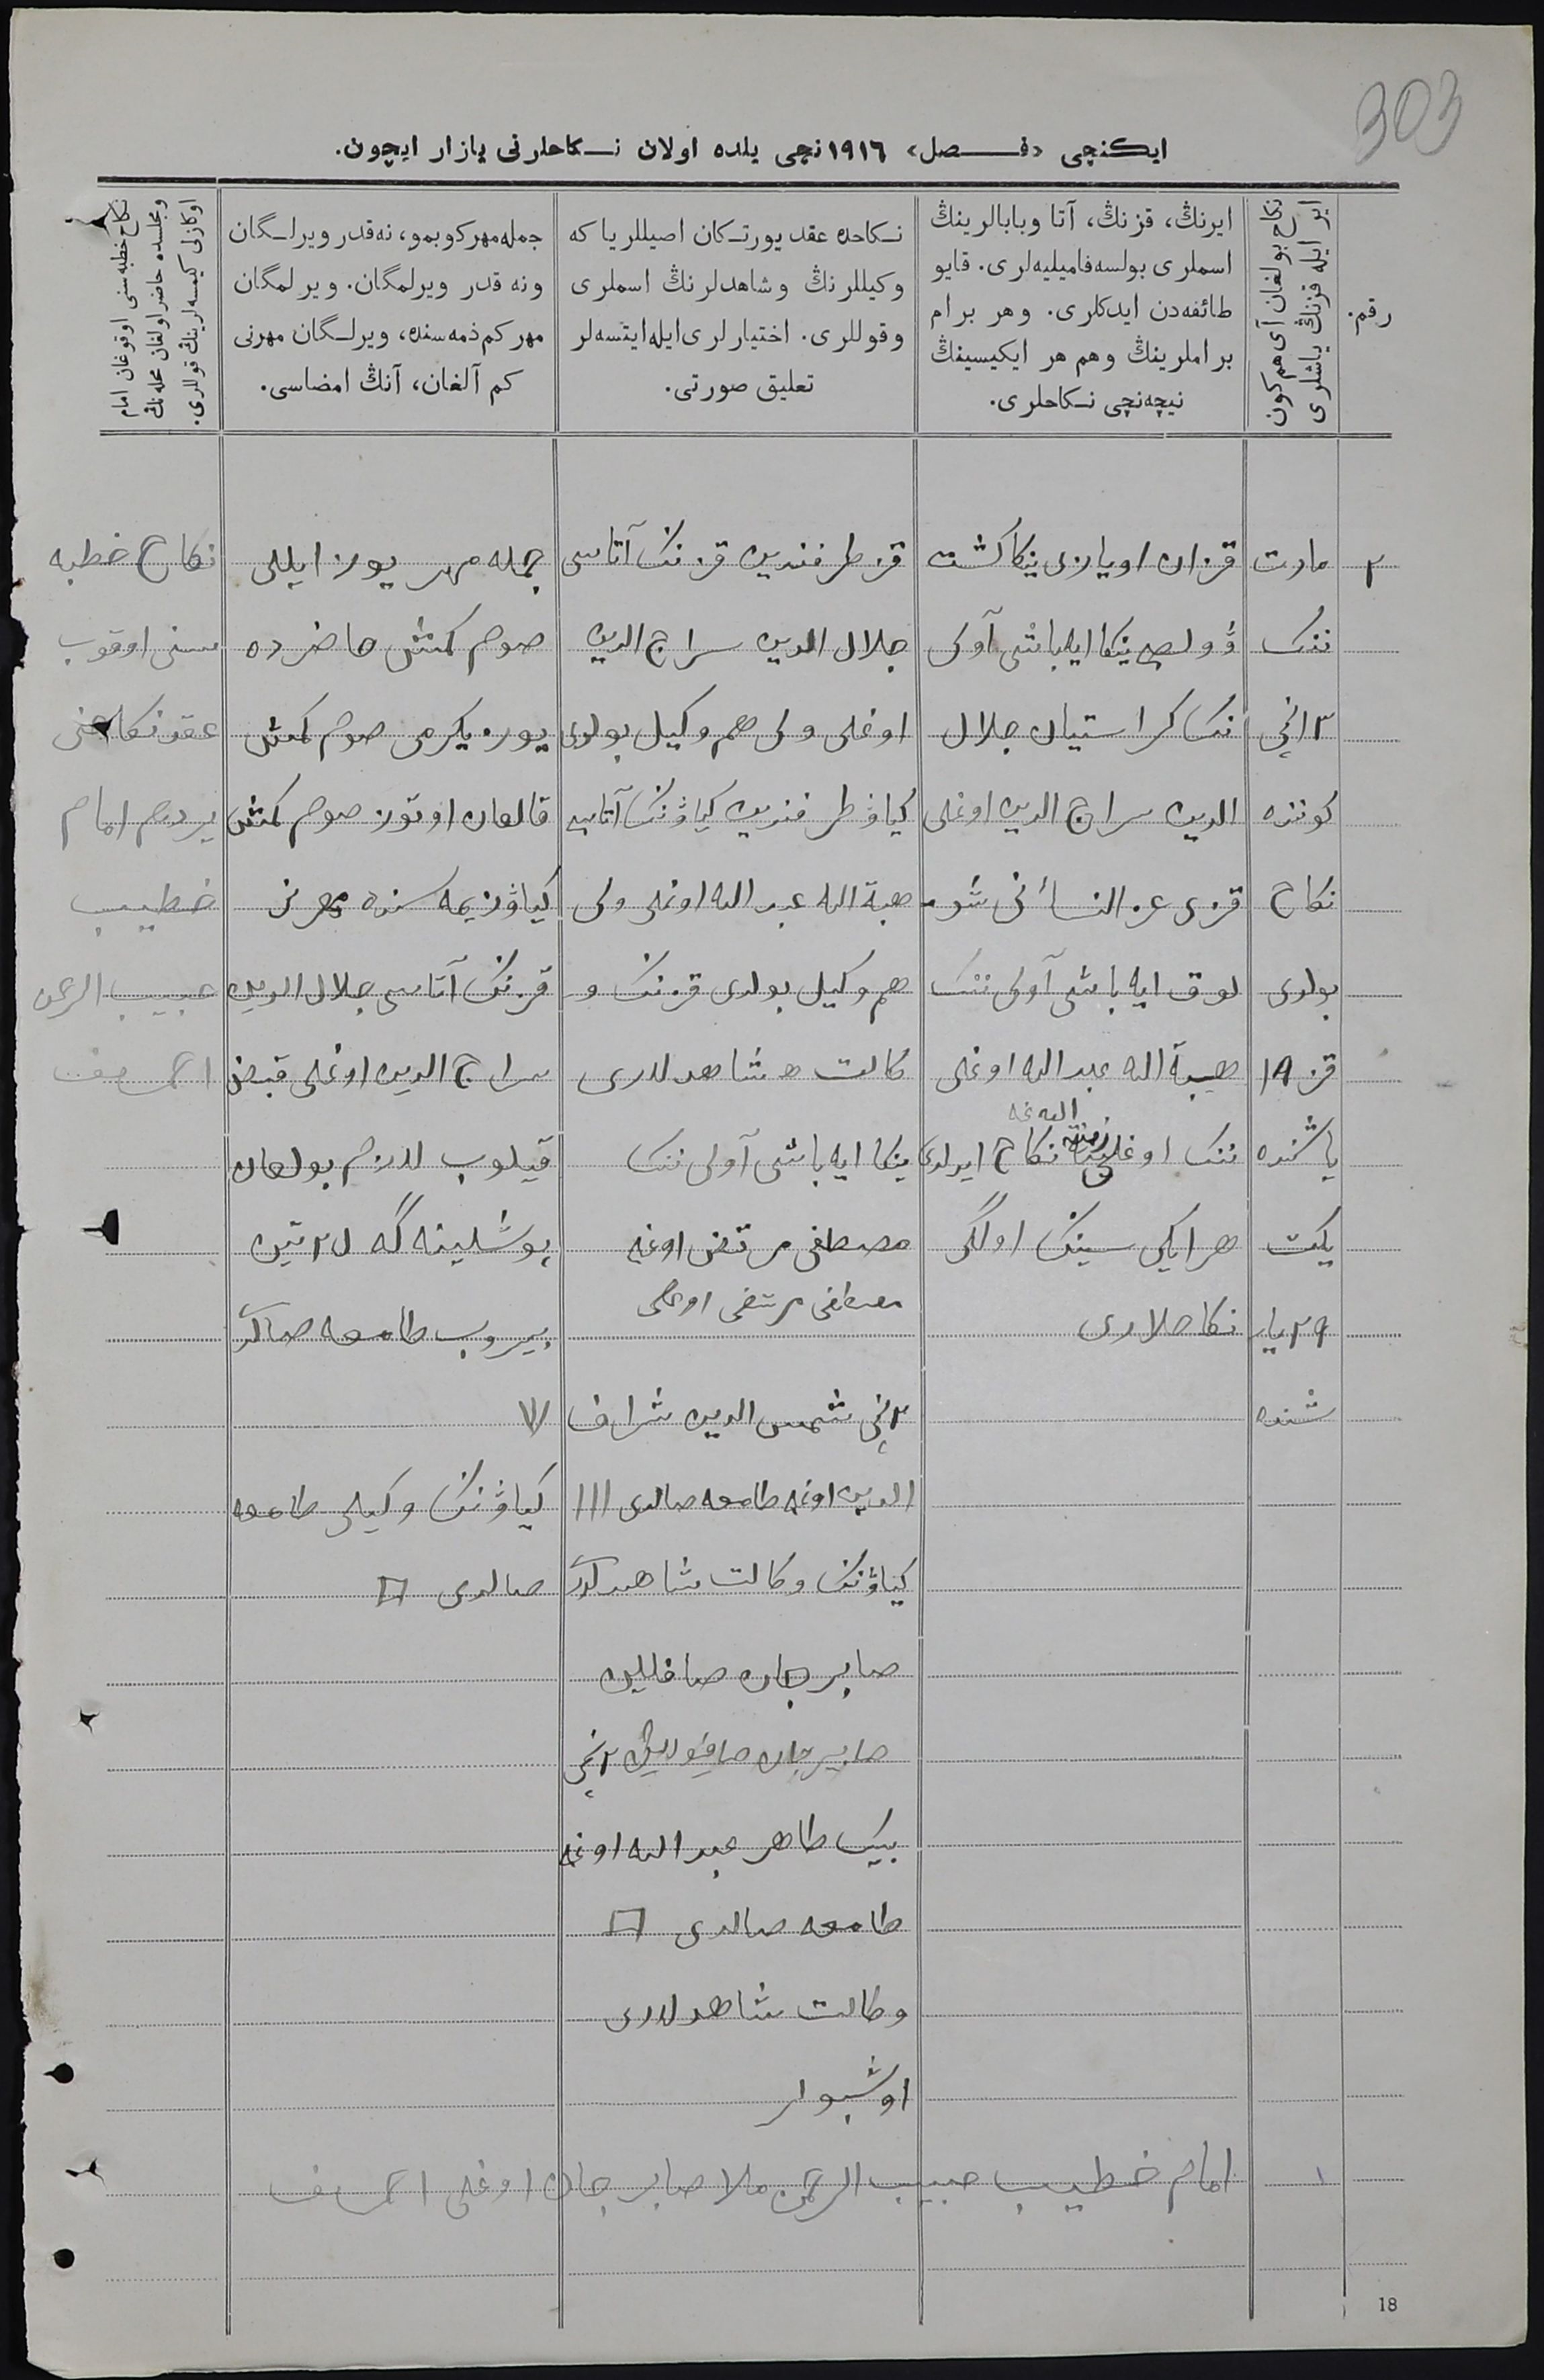 303
ایکنچی «فصل» ١٩١٦نچی یلده اولان نکاحلرنی یازار ایچون.
رقم.
نکاح بولغان آی هم کون
ایر ایله قزنڭ یاشلری
ایرنڭ، قزنڭ، آتا وبابالرینڭ
اسملری بولسه فامیلیه‌لری. قایو
طائفه‌دن ایدکلری. وهر برام
براملرینڭ وهم هر ایکیسینڭ
نیچه‌نچی نکاحلری.
نکاحده عقد یورتکان اصیللر یا که
وکیللرنڭ وشاهدلرنڭ اسملری
وقوللری. اختیارلری ایله ایتسه‌لر
تعلیق صورتی.
جمله‌مهر کوبمو، نه‌قدر ویرلگان
ونه قدر ویرلمگان. ویرلمگان
مهر کم ذمه‌سنده، ویرلگان مهرنی
کم آلغان، آنڭ امضاسی.
نکاح خطبه‌سنی اوقوغان امام
ومجلسده حاضر اولغان محله‌نڭ
اوکازلی کیمسه‌لرینڭ قوللری.
٢
مارت
ننک
١٣نچی
کوننده
نکاح
بولدی
قز ١٨
یاشنده
یکت
٢٩ یا
شنده
قزان اویازی ینکا کشت
وولصی ینکا ایله باشی آولی
ننک کراستیان جلال
الدین سراج الدین اوغلی
قزی عز النسائنی شو
لوق ایله باشی آولی ننک
هبة الله عبد الله اوغلی
ننک اوغلی الله غه نکاح ایدلدی
هر ایکی سینک اولگی
نکاحلاری
قز طرفندین قزننک آتاسی
جلال الدین سراج الدین
اوغلی ولی هم وکیل بولدی
کیاو طرفندین کیاوننک آتاسی
هبة الله عبد الله اوغلی ولی
هم وکیل بولدی قزننک و
کالت شاهدلاری
ینکا ایله باشی آولی ننک
مصطفی مرتضی اوغلی
مصطفی مرتضی اوغلی
٢نچی شمس الدین شراف
الدین اوغلی طامعه صالدی ١١١
کیاوننک وکالت شاهدلاری
صابرجان صافللین
صابیرجان صافیوللین ٢نچی
بیک طاهر عبد الله اوغلی
طامعه صالدی
وکالت شاهدلاری
اوشبولر
جمله مهر یوز ایللی
صوم کمش حاضرده
یوز یکرمی صوم کمش
قالغان اوتوز صوم کمش
کیاو ذیمه سنده مهرنی
قزننک آتاسی جلال الدین
سراج الدین اوغلی قبض
قیلوب لازم بولغان
پوشلینه گه ٢٥ تین
بیروب طامعه صالدی
کیاوننک وکیلی طامعه
صالدی
نکاح خطبه
سنی اوقوب
عقد نکاحنی
یردم امام
خطیب
حبیب الرحمن
١
امام خطیب حبیب الرحمن ملا صابرجان اوغلی
18